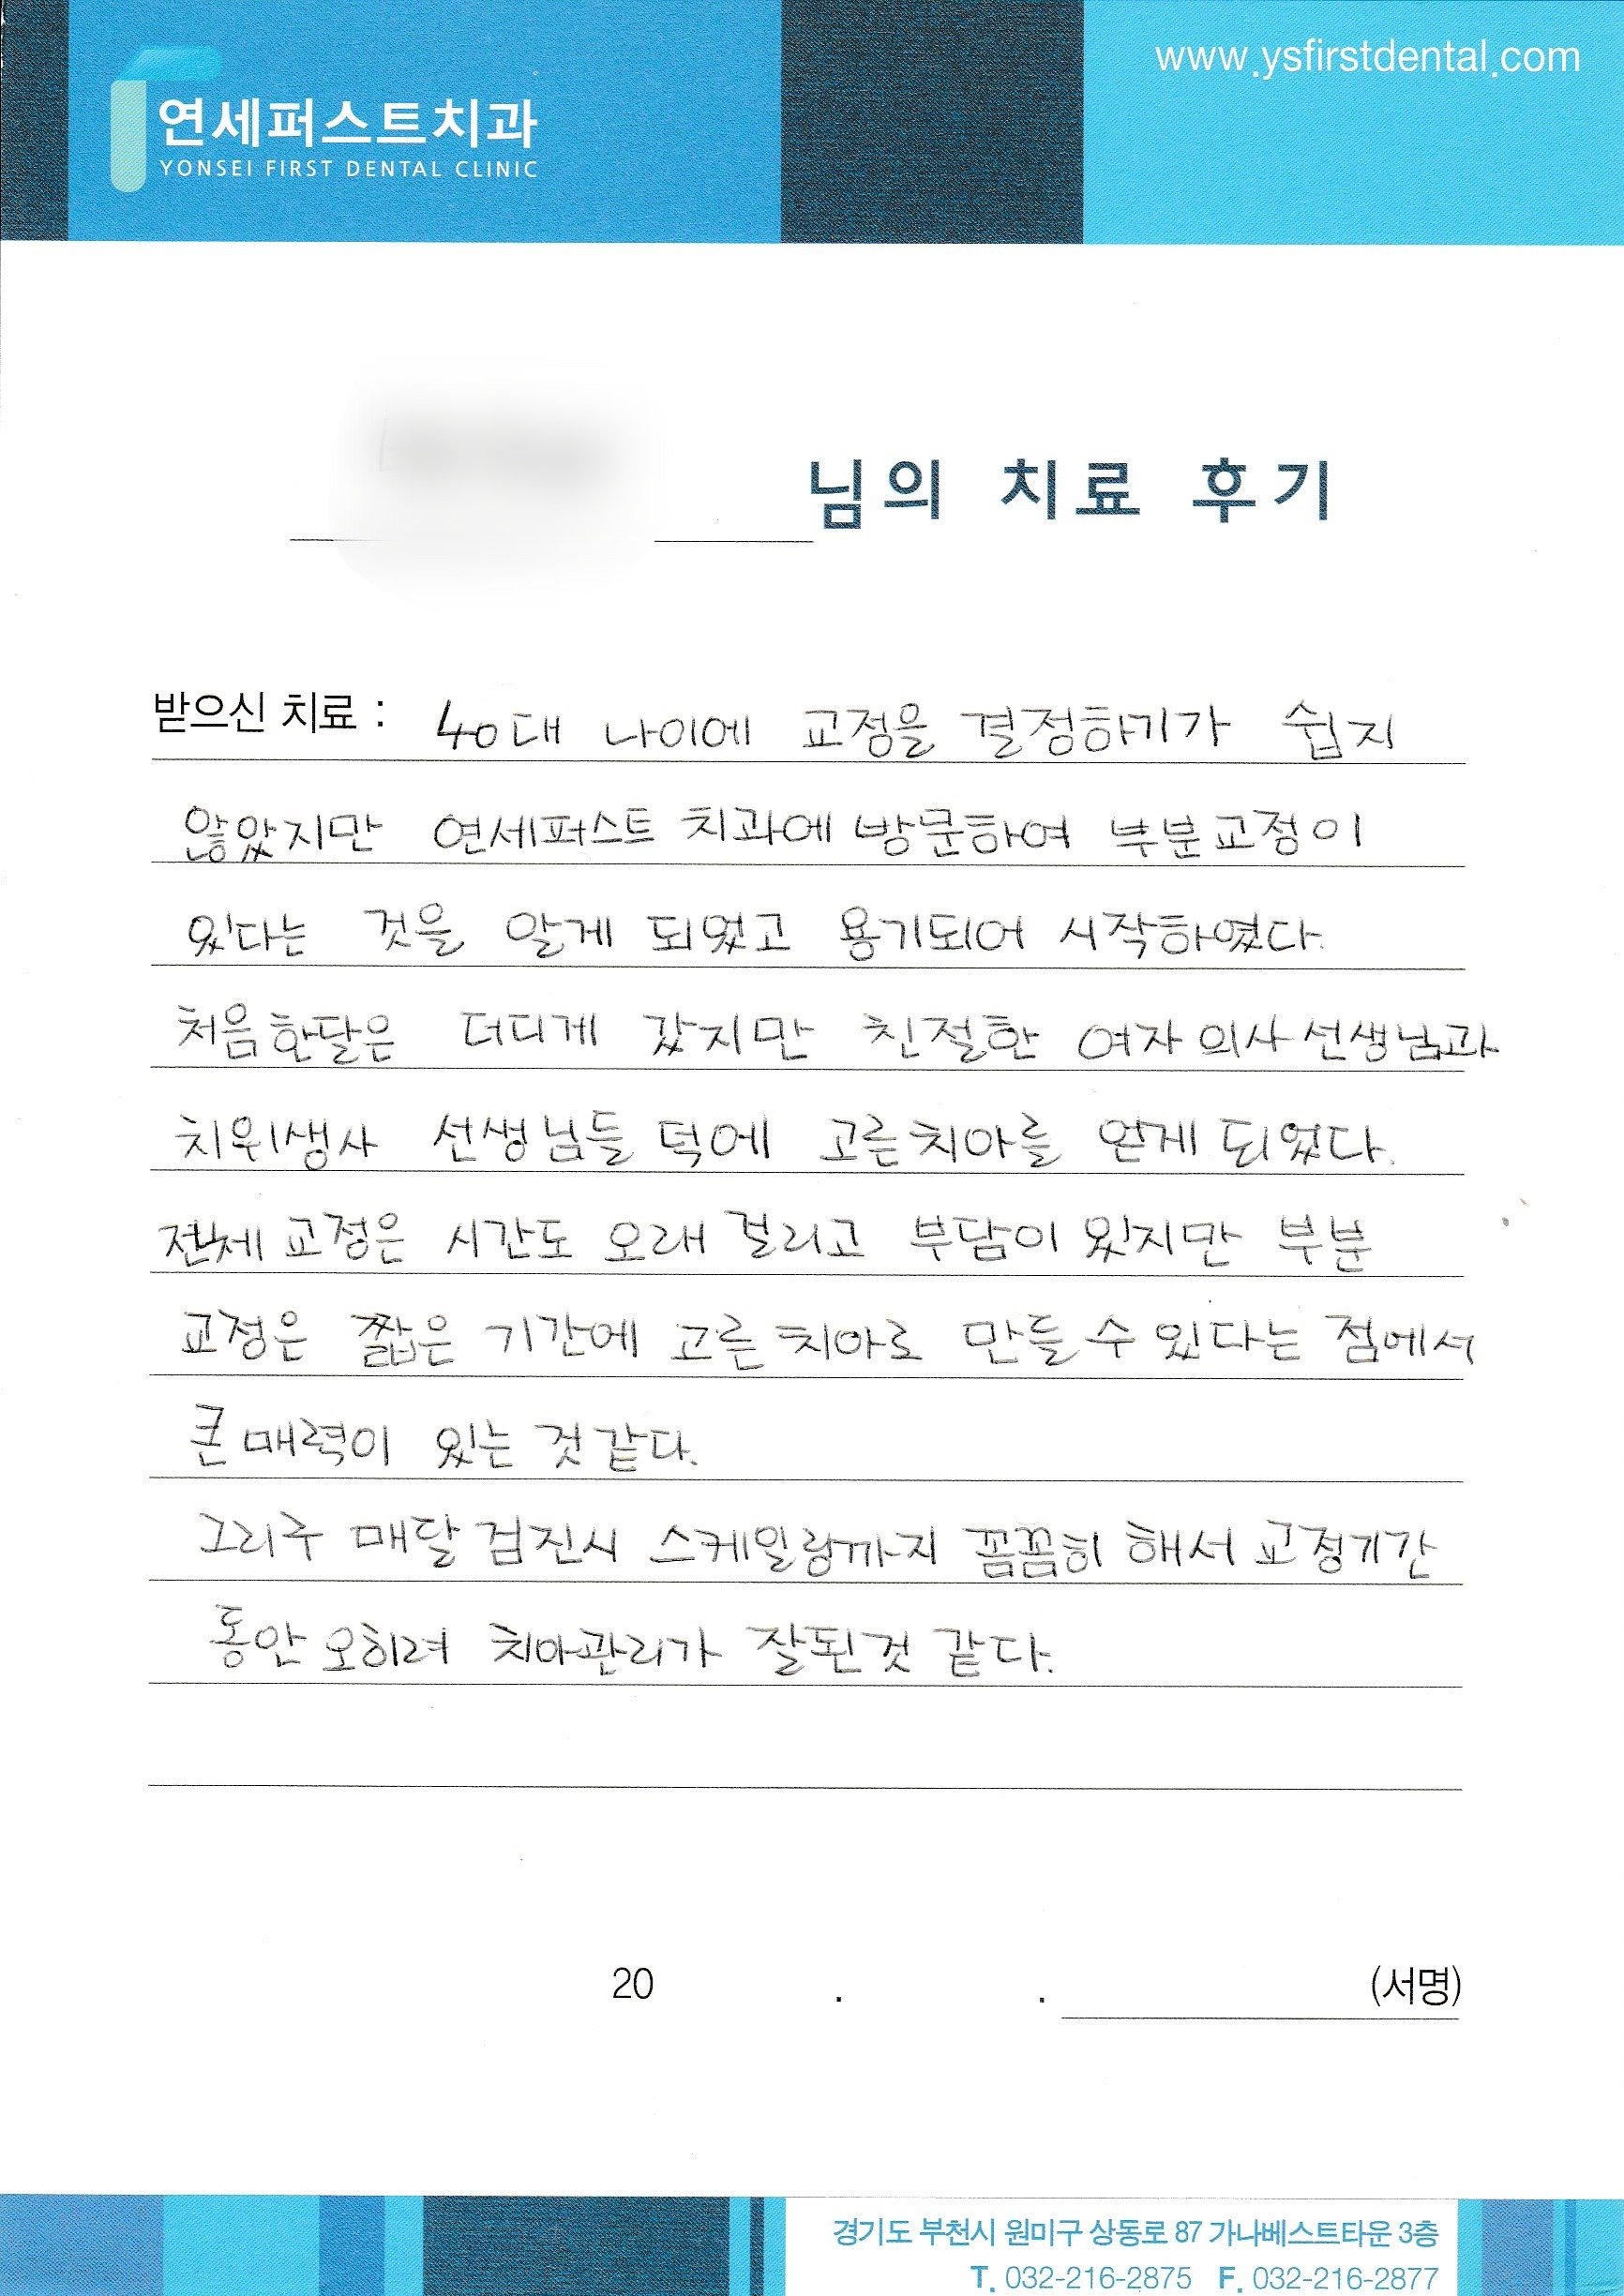 www.ysfirstdental.com
연세퍼스트치과
YONSEI FIRST DENTAL CLINIC
님의 치료 후기
받으신 치료 : 40대 나이에 교정을 결정하기가 쉽지
않았지만 연세퍼스트 치과에 방문하여 부분교정이
있다는 것을 알게 되었고 용기되어 시작하였다.
처음한달은 더디게 갔지만 친절한 여자 의사 선생님과
치위생사 선생님들 덕에 고른치아를 얻게 되었다.
전체 교정은 시간도 오래 걸리고 부담이 있지만 부분
교정은 짧은 기간에 고른 치아로 만들 수 있다는 점에서
큰 매력이 있는 것 같다.
그리구 매달 검진시 스케일링까지 꼼꼼히 해서 교정기간
동안 오히려 치아관리가 잘된것 같다.
20 . . (서명)
경기도 부천시 원미구 상동로 87 가나베스트타운 3층
T. 032-216-2875 F. 032-216-2877